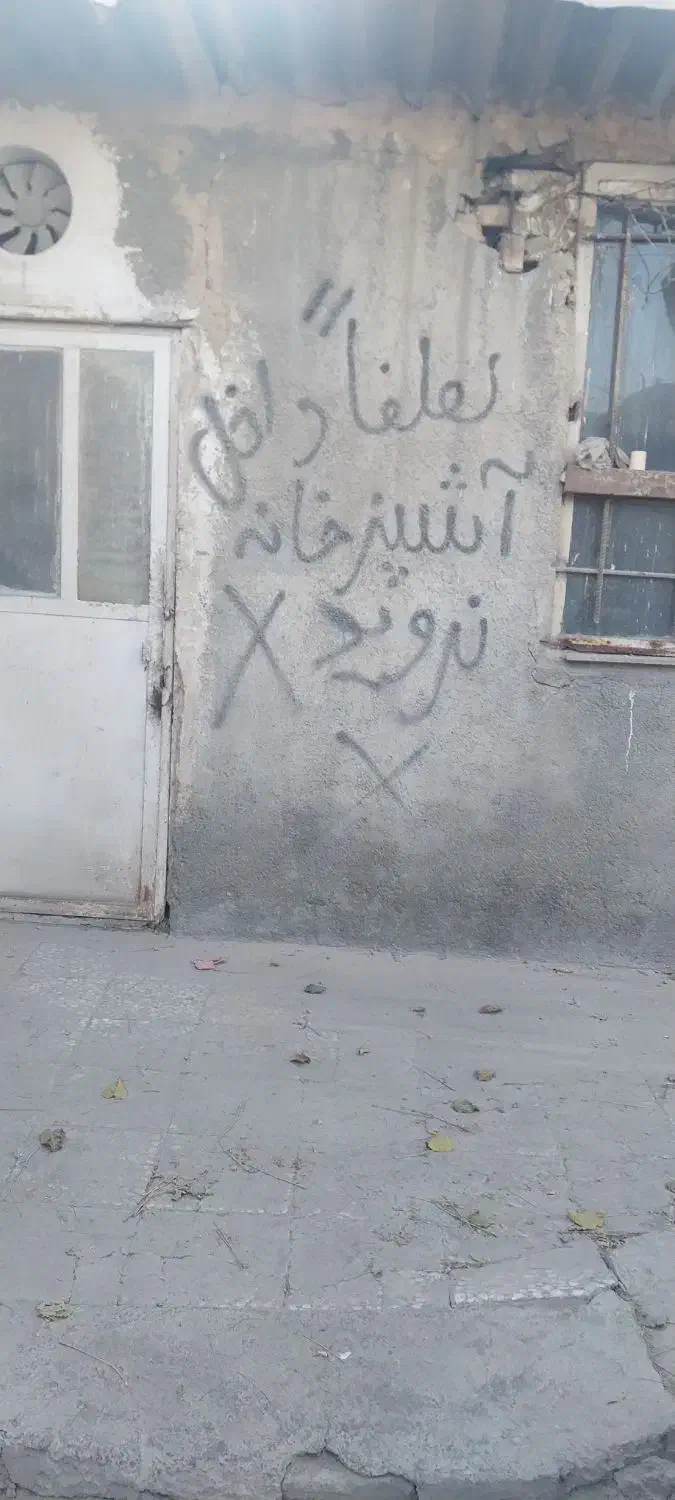 لطفاً داخل
آشپزخانه
نروید